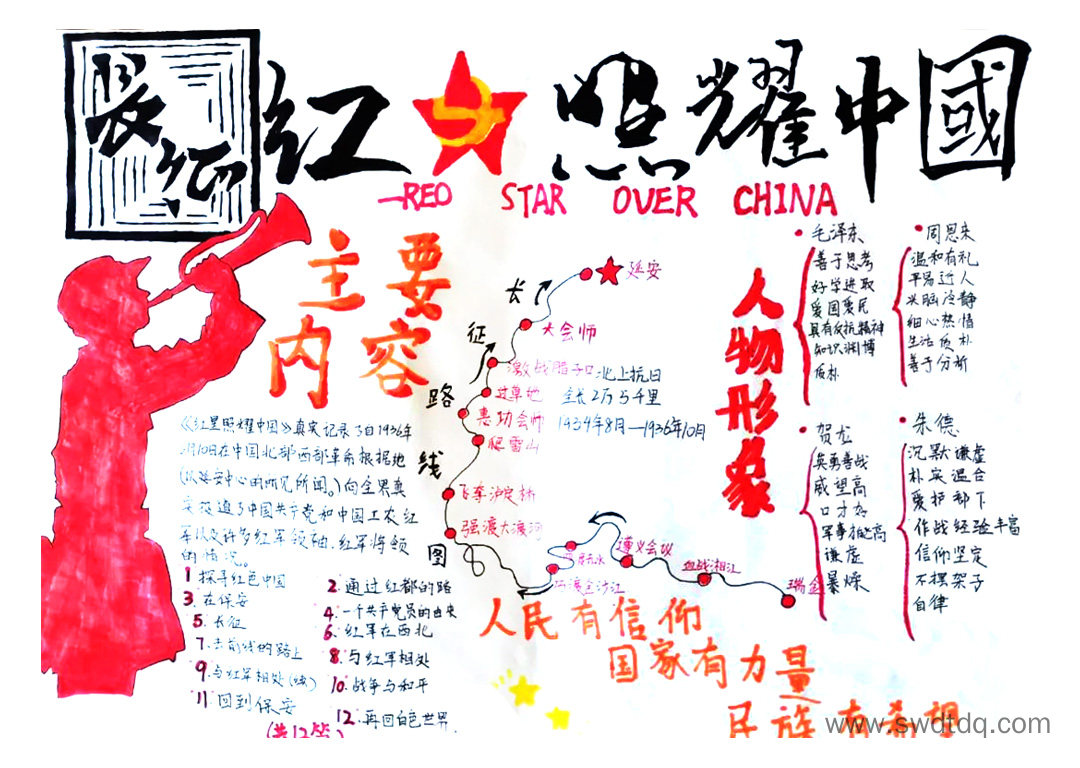 長征
红 照耀中國
—RED STAR OVER CHINA
主要
内容
《红星照耀中国》真实记录了自1936年
月10日在中国北部西部革命根据地
(以延安中心的所见所闻。)向全界真
实报道了中国共产党和中国工农红
军以及许多红军领袖、红军将领
的情况。
1 探寻红色中国
2. 通过红都的路
3. 在保安
4. 一个共产党员的由来
5. 长征
6. 红军在西北
7. 去前线的路上
8. 与红军相处
9. 与红军相处(续)
10. 战争与和平
11. 回到保安
12. 再回白色世界.
(共12篇)
长征路线图
延安
大会师
激战腊子口
北上抗日
过草地
全长2万5千里
懋功会师
1934年8月—1936年10月
爬雪山
飞夺泸定桥
强渡大渡河
巧渡金沙江
遵义会议
血战湘江
瑞金
人物形象
毛泽东
善于思考
好学进取
爱国爱民
具有反抗精神
知识渊博
质朴
周恩来
温和有礼
平易近人
头脑冷静
细心热情
生活质朴
善于分析
贺龙
英勇善战
威望高
口才好
军事
谦虚
暴燥
朱德
沉默谦虚
朴实温合
爱护部下
作战经验丰富
信仰坚定
不摆架子
自律
人民有信仰
国家有力量
民族有希望
www.swdtdq.com